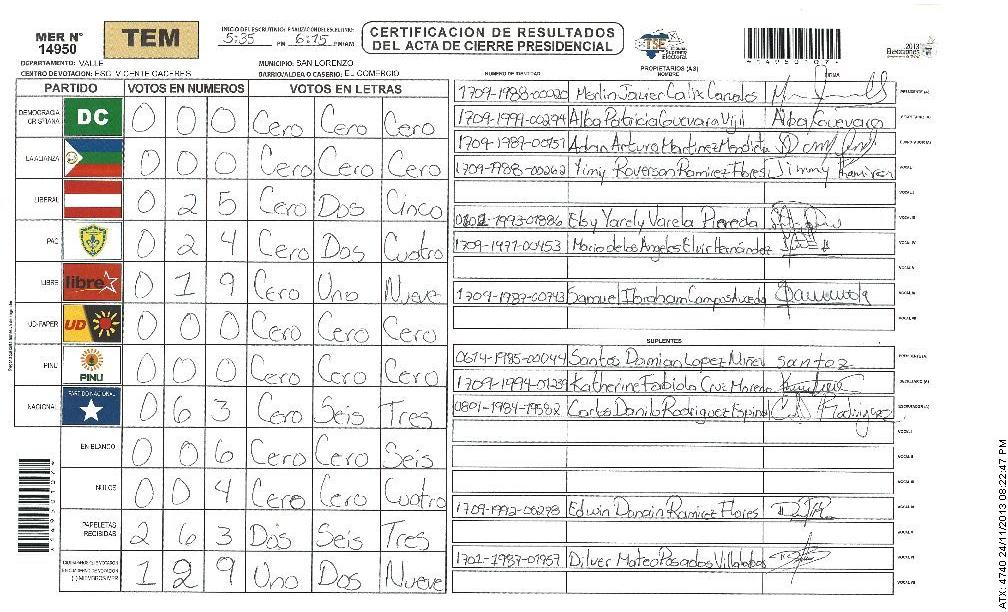 MER N° 14950
TEM
INICIO DEL ESCRUTINIO: FINALIZACION DEL ESCRUTINIO:
5:35 PM 6:15 PM/AM
CERTIFICACIÓN DE RESULTADOS
DEL ACTA DE CIERRE PRESIDENCIAL
TSE Tribunal Supremo Electoral
Elecciones 2013
DEPARTAMENTO: VALLE
MUNICIPIO: SAN LORENZO
CENTRO DE VOTACION: ESC. VICENTE CACERES
BARRIO/ALDEA O CASERIO: EL COMERCIO
PARTIDO VOTOS EN NUMEROS VOTOS EN LETRAS
DEMOCRACIA CRISTIANA DC 0 0 0 Cero Cero Cero
LA ALIANZA 0 0 0 Cero Cero Cero
LIBERAL 0 2 5 Cero Dos Cinco
PAC 0 2 4 Cero Dos Cuatro
LIBRE libre 0 1 9 Cero Uno Nueve
UD-FAPER UD 0 0 0 Cero Cero Cero
PINU PINU 0 0 0 Cero Cero Cero
NACIONAL PARTIDO NACIONAL 0 6 3 Cero Seis Tres
EN BLANCO 0 0 6 Cero Cero Seis
NULOS 0 0 4 Cero Cero Cuatro
PAPELETAS RECIBIDAS 2 6 3 Dos Seis Tres
1 2 9 Uno Dos Nueve
NUMERO DE IDENTIDAD PROPIETARIOS (AS) NOMBRE FIRMA
1709-1988-00020 Merlin Javier Calix Canales PRESIDENTE (A)
1709-1999-00294 Alba Patricia Guevara Vijil Alba Guevara SECRETARIO (A)
1709-1989-00151 Adan Arturo Martinez Mendida ESCRUTADOR (A)
1709-1988-00262 Yimy Roverson Ramirez Flores Jimmy Ramirez VOCAL I
VOCAL II
1993-01886 Elsy Yarely Varela Pereda VOCAL III
1709-1977-00453 Maria de los Angeles Elvir Hernández VOCAL IV
VOCAL V
1709-1987-00743 Samuel Ibraham Campos VOCAL VI
VOCAL VII
SUPLENTES
0614-1985-00044 Santos Damian Lopez santoz PRESIDENTE (A)
1709-1994-01239 Katherine Fabiola Cruz Moreno SECRETARIO (A)
0801-1984-19582 Carlos Danilo Rodriguez Espinal ESCRUTADOR (A)
VOCAL I
VOCAL II
VOCAL III
1709-1992-00298 Edwin Donain Ramirez Flores VOCAL IV
VOCAL V
1701-1987-01957 Dilver Mateo Posados Villalobos VOCAL VI
VOCAL VII
ATX: 4740 24/11/2013 08:22:47 PM